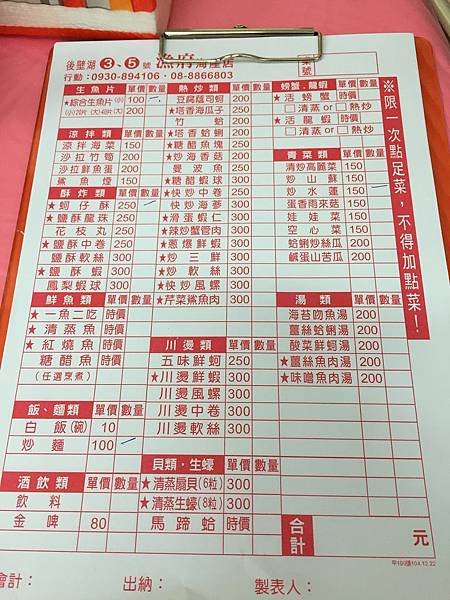 後壁湖 3、5 號 漁府海產店
行動：0930-894106・08-8866803
號
生魚片 單價 數量
★綜合生魚片 (小) 100
(小)20片 (大)40片 (大) 200
涼拌類 單價 數量
涼拌海菜 150
沙拉竹筍 200
沙拉鮮魚蛋 200
鯊魚煙 150
酥炸類 單價 數量
★蚵仔酥 250
★鹽酥龍珠 250
花枝丸 250
★鹽酥中卷 250
鹽酥軟絲 300
★鹽酥蝦 300
鳳梨蝦球 300
鮮魚類 單價 數量
★一魚二吃 時價
★清蒸魚 時價
★紅燒魚 時價
糖醋魚 時價
(任選烹煮)
飯、麵類 單價 數量
白飯(碗) 10
炒麵 100
酒飲類 單價 數量
飲料
金啤 80
熱炒類 單價 數量
豆腐蔭司蚵 200
★塔香海瓜子 250
竹蛤 200
★塔香蛤蜊 200
★糖醋魚塊 250
★炒海香菇 200
曼波魚 250
★糖醋蝦球 300
★快炒中卷 250
快炒海蔘 300
★滑蛋蝦仁 300
★辣炒蟹管肉 300
★蔥爆鮮蝦 300
★炒三鮮 300
★炒軟絲 300
★快炒風螺 300
★芹菜鯊魚肉 300
川燙類 單價 數量
五味鮮蚵 250
★川燙鮮蝦 300
川燙風螺 300
川燙中卷 300
川燙軟絲 300
貝類・生蠔 單價 數量
★清蒸扇貝(6粒) 300
★清蒸生蠔(8粒) 300
馬蹄蛤 時價
螃蟹．龍蝦 單價 數量
★活螃蟹 時價
□清蒸 or □熱炒
★活龍蝦 時價
□清蒸 or □熱炒
青菜類 單價 數量
清炒高麗菜 150
炒山蘇 150
炒水蓮 150
蛋香雨來菇 150
娃娃菜 150
空心菜 150
蛤蜊炒絲瓜 200
鹹蛋山苦瓜 200
湯類 單價 數量
海苔吻魚湯 200
薑絲蛤蜊湯 200
酸菜鮮蚵湯 200
★薑絲魚肉湯 200
★味噌魚肉湯 200
合計 元
※限一次點足菜，不得加點菜！
會計： 出納： 製表人：